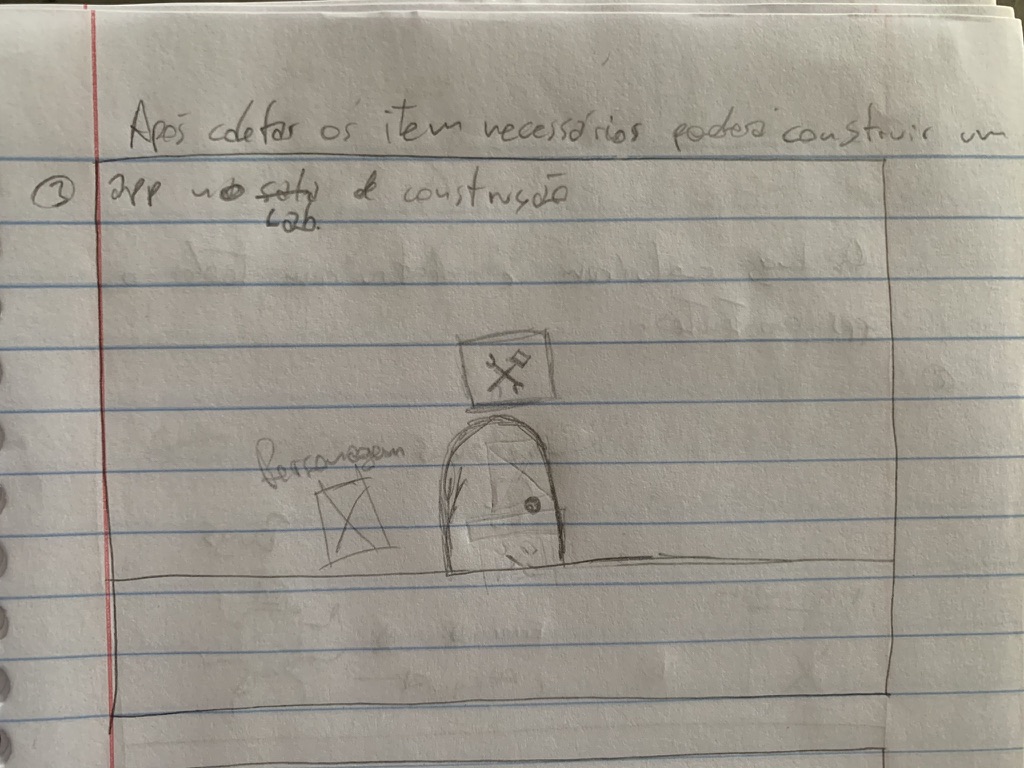 Após coletar os item necessários poderá construir um
③ app no lab. de construção
Personagem